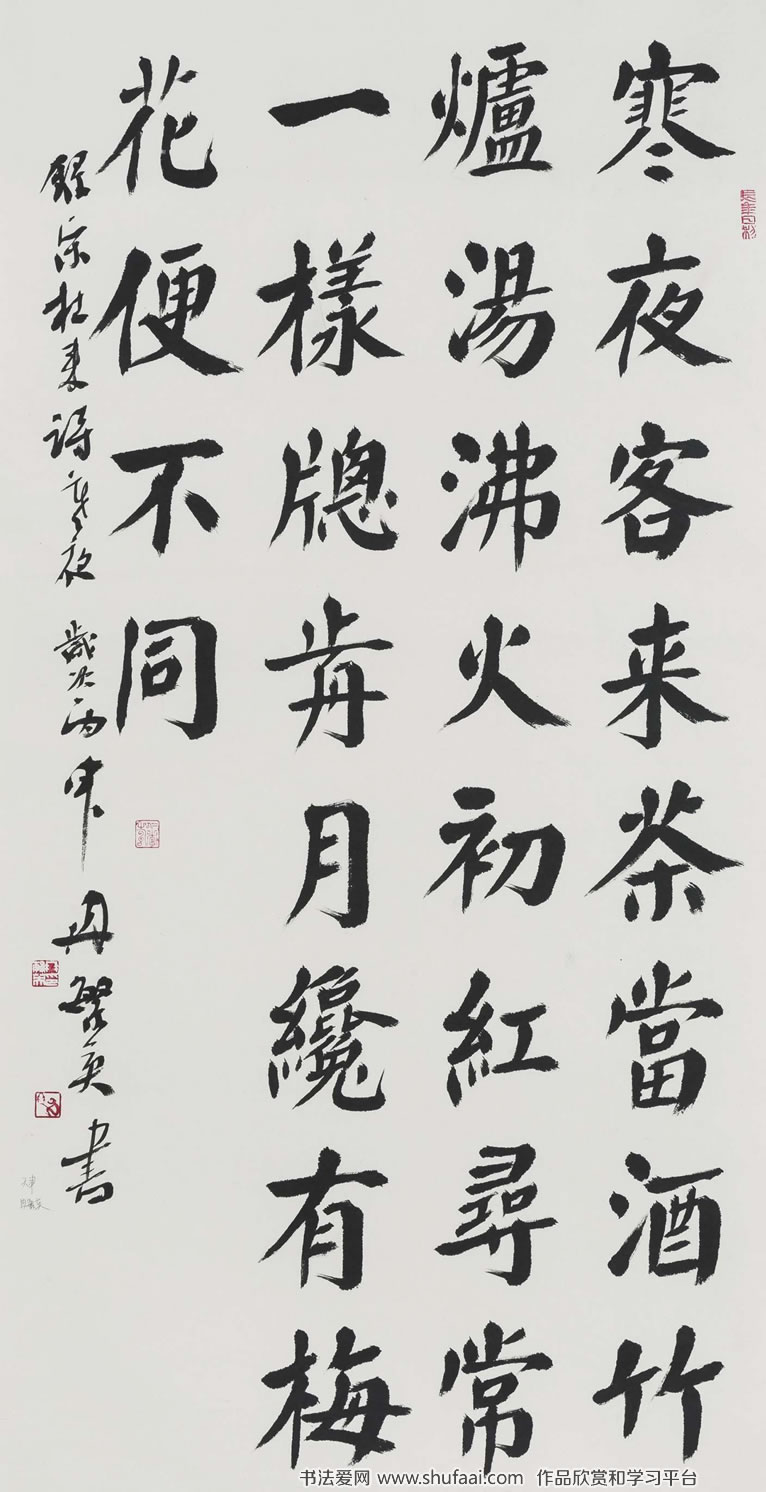 寒夜客来茶當酒竹
爐湯沸火初紅尋常
一樣牕歬月纔有梅
花便不同
録宋杜耒詩寒夜 歲次丙申 冉繁英書
天津
冉繁英
书法爱网 www.shufaai.com 作品欣赏和学习平台